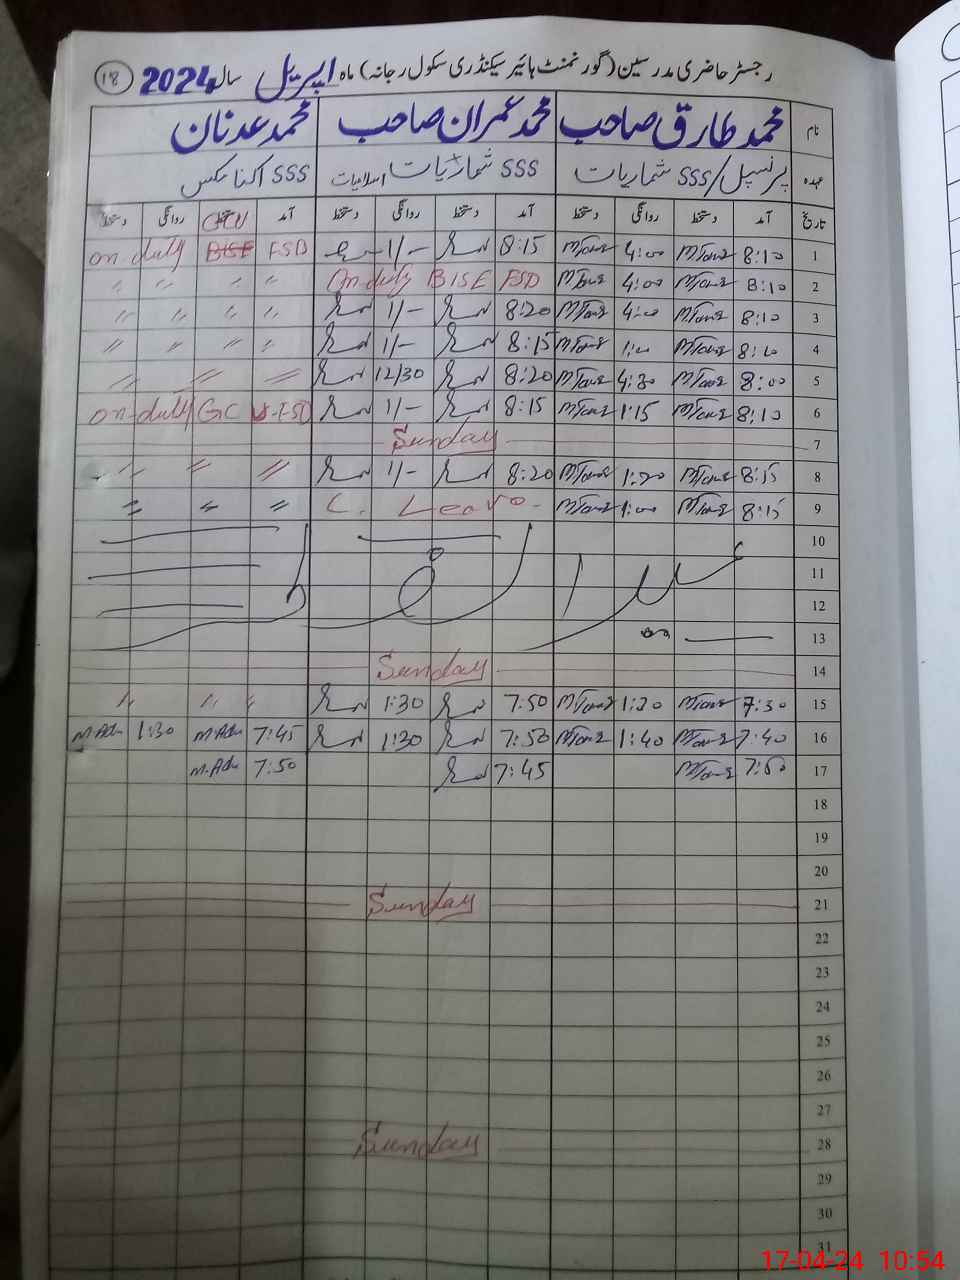 رجسٹر حاضری مدرسین (گورنمنٹ ہائیر سیکنڈری سکول رجانہ) ماہ اپریل سال 2024 ۱۸
نام محمد طارق صاحب محمد عمران صاحب محمد عدنان
عہدہ پرنسپل/SSS شماریات SSS شماریات اسلامیات SSS اکنامکس
تاریخ آمد دستخط روانگی دستخط آمد دستخط روانگی دستخط آمد دستخط روانگی دستخط
1 8:10 MTariq 4:00 MTariq 8:15 1/- on-duty GCU FSD
2 8:10 MTariq 4:00 MTariq On duty BISE FSD " " " "
3 8:10 MTariq 4:00 MTariq 8:20 1/- " " " "
4 8:10 MTariq 1:00 MTariq 8:15 1/- " " " "
5 8:00 MTariq 4:30 MTariq 8:20 12/30 " " "
6 8:10 MTariq 1:15 MTariq 8:15 1/- on-duty GC U-FSD
7 Sunday
8 8:15 MTariq 1:20 MTariq 8:20 1/- " " "
9 8:15 MTariq 1:00 MTariq C. Leave " " "
10
11 عید الفطر
12
13
14 Sunday
15 7:30 MTariq 1:30 MTariq 7:50 1:30 " " "
16 7:40 MTariq 1:40 MTariq 7:50 1:30 7:45 M.Adn 1:30 M.Adn
17 7:50 MTariq 7:45 7:50 M.Adn
18
19
20
21 Sunday
22
23
24
25
26
27
28 Sunday
29
30
31
17-04-24 10:54